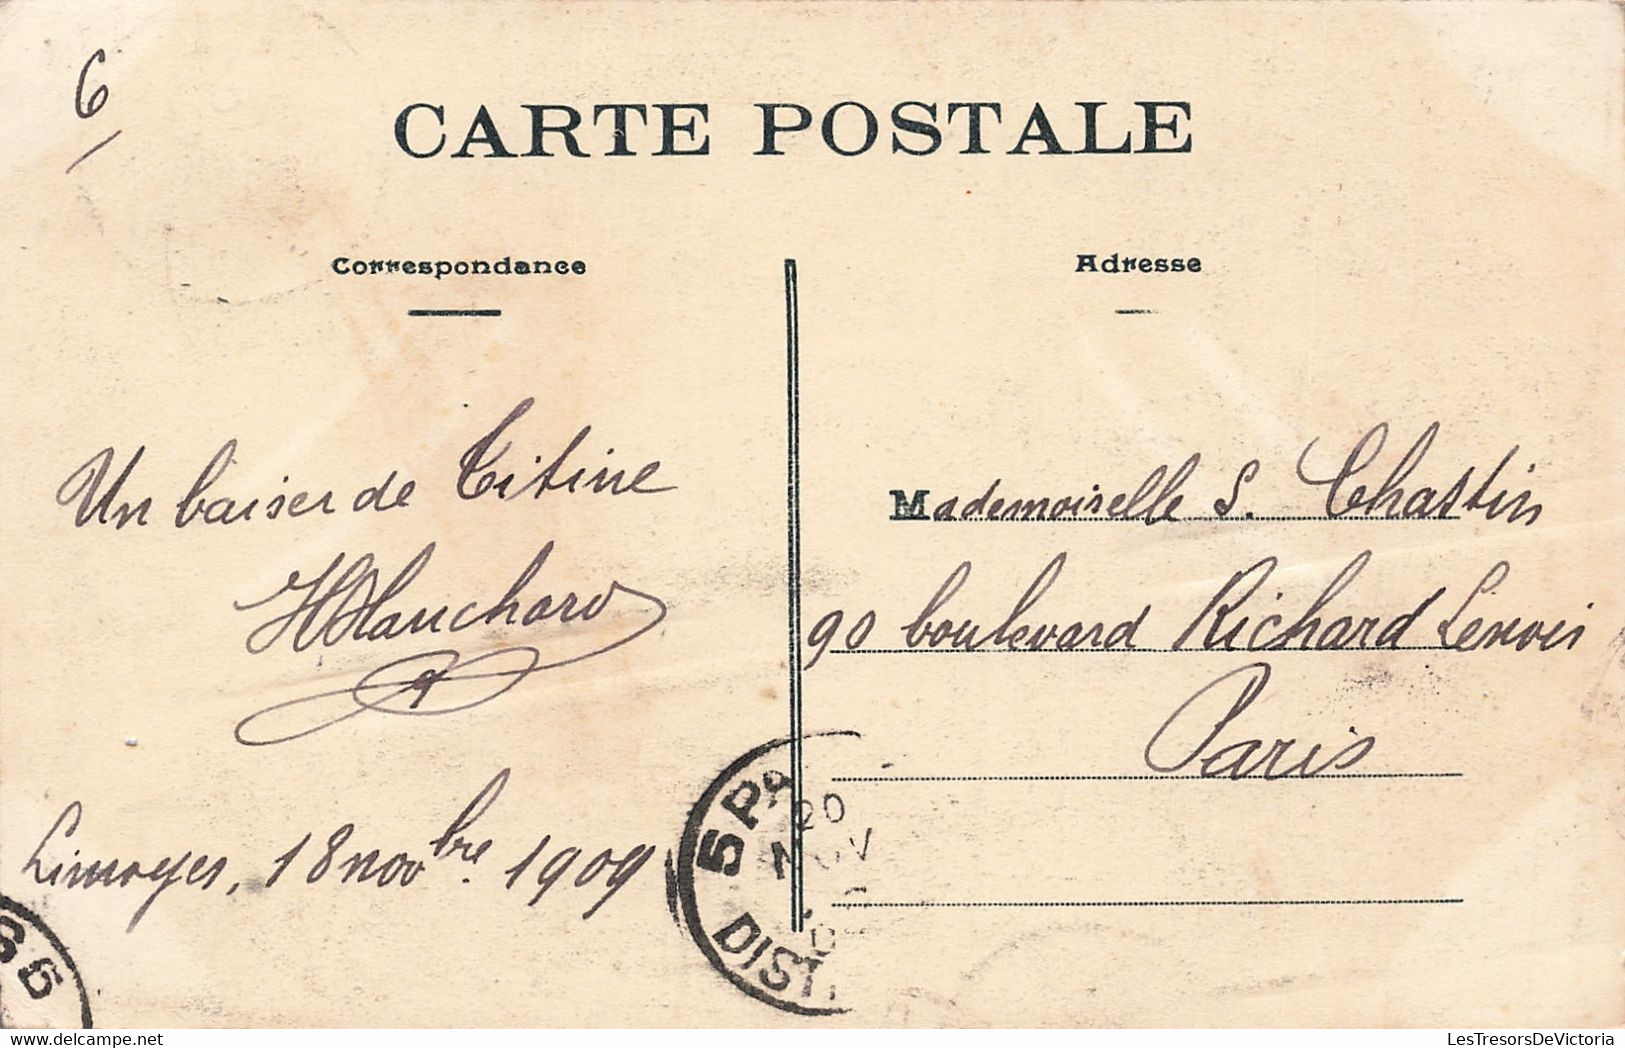 6
CARTE POSTALE
Correspondance
Adresse
Un baiser de Titine
Limoges, 18 novbre. 1909
Mademoiselle S. Chastin
90 boulevard Richard Lenoir
Paris
5 PA
20
NOV
DIST
LesTresorsDeVictoria